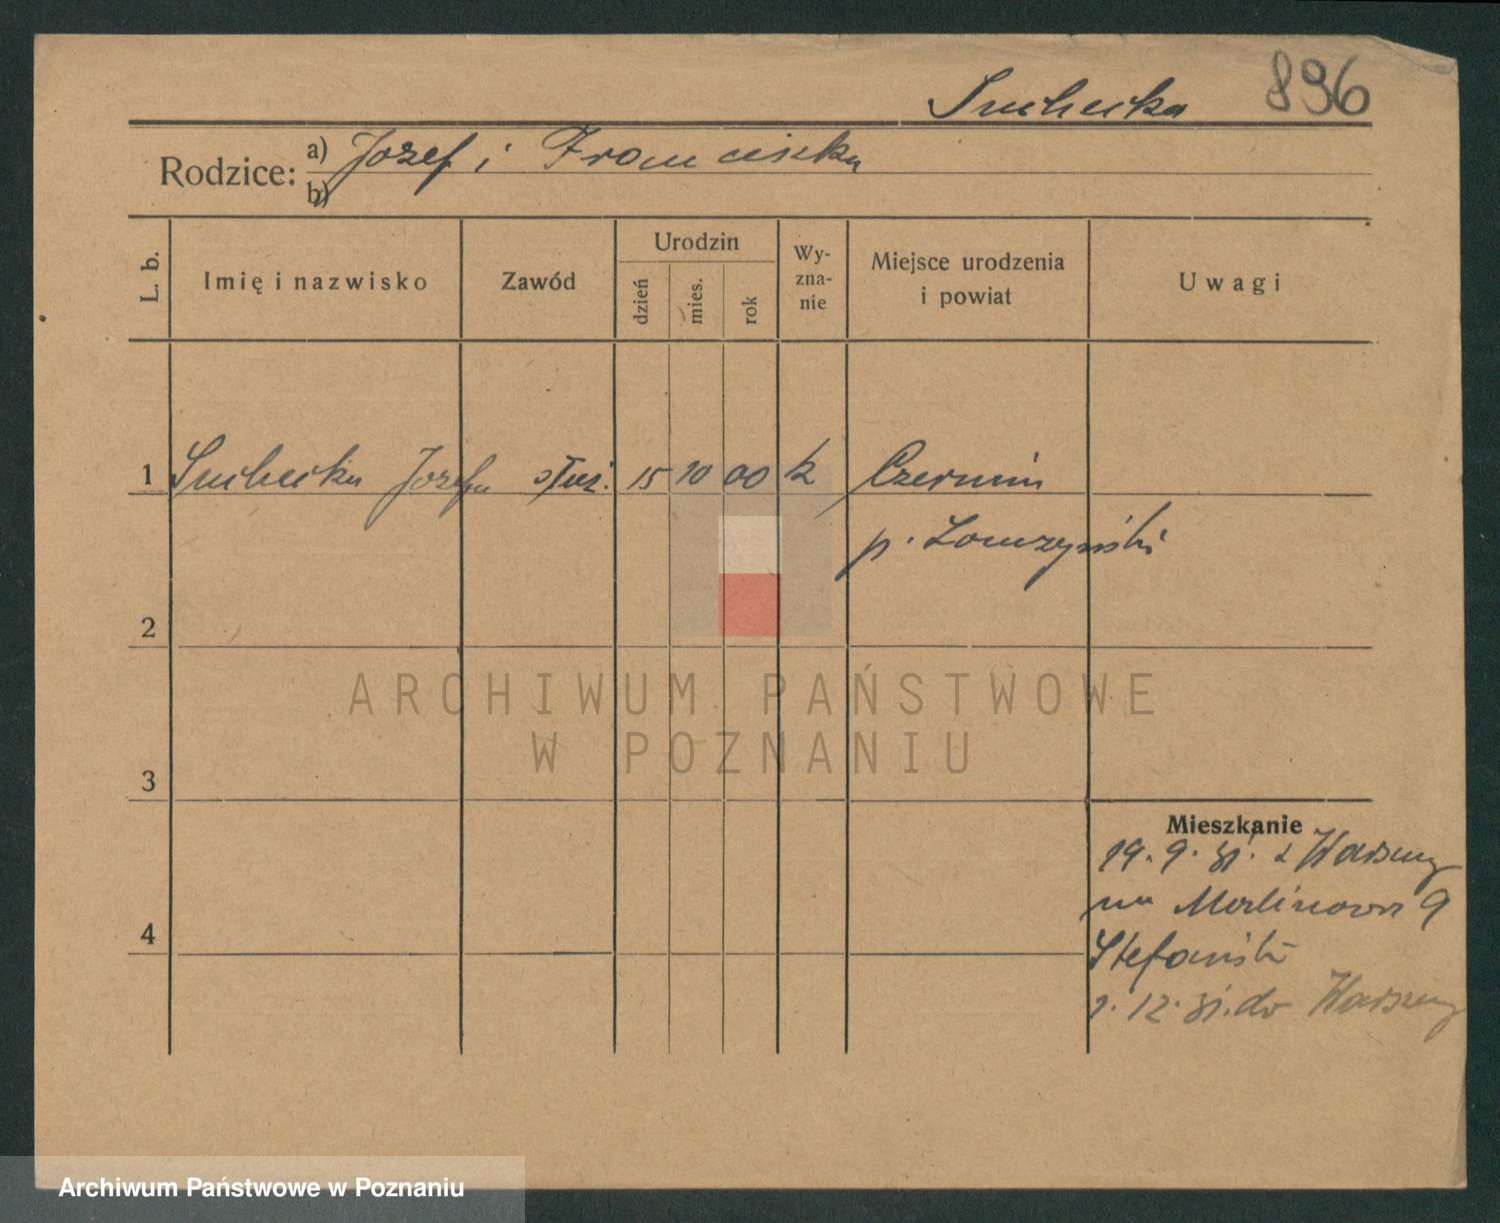 Suchecka 896
Rodzice: a) Józef i Franciszka
b)
L. b. Imię i nazwisko Zawód Urodzin dzień mies. rok Wyznanie Miejsce urodzenia i powiat Uwagi
1 Suchecka Józefa służ. 15 10 00 k Czermin
p. Łomżyński
2
ARCHIWUM PAŃSTWOWE
W POZNANIU
3
Mieszkanie
19. 9. 31. z Warszawy
na Malinowa 9
4
Stefański
1. 12. 31. do Warszawy
Archiwum Państwowe w Poznaniu